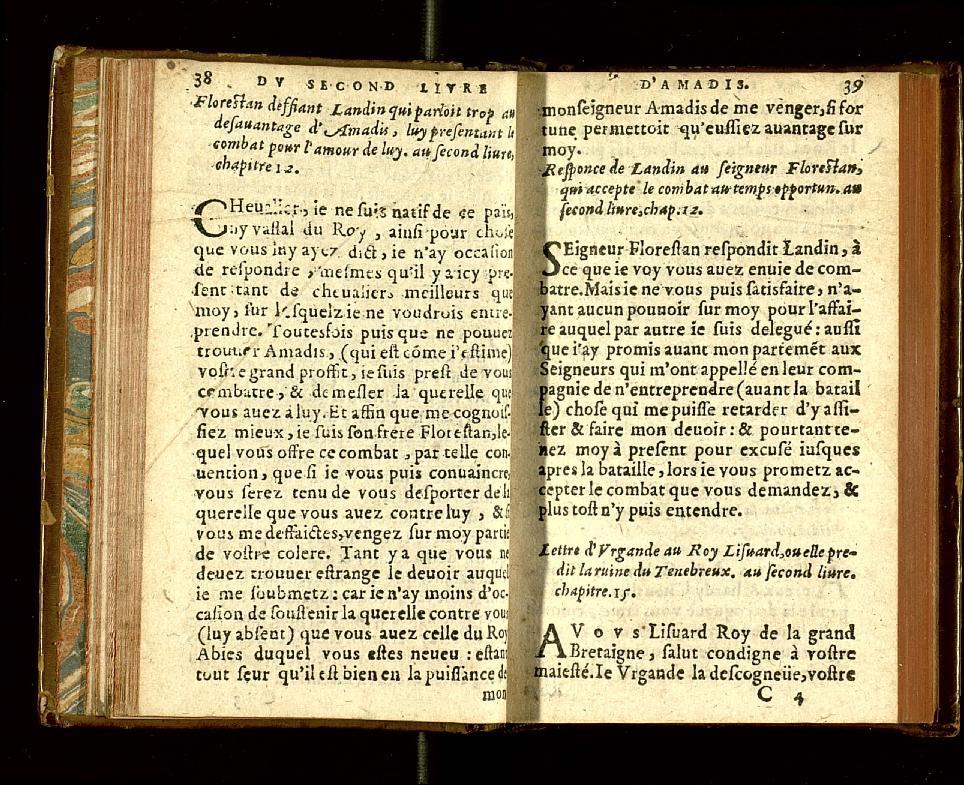 38 DV SECOND LIVRE
Florestan deffiant Landin qui parloit trop au
desauantage d'Amadis, luy presentant le
combat pour l'amour de luy. au second liure,
chapitre 12.
CHeualier, ie ne suis natif de ce païs,
ny vassal du Roy, ainsi pour chose
que vous luy ayez dict, ie n'ay occasion
de respondre, mesmes qu'il y a icy pre-
sent tant de cheualiers meilleurs que
moy, sur lesquelz ie ne voudrois entre-
prendre. Toutesfois puis que ne pouuez
trouuer Amadis, (qui est cõme i'estime)
vostre grand proffit, ie suis prest de vous
combatre, & demesler la querelle que
vous auez à luy. Et affin que me cognois-
siez mieux, ie suis son frere Florestan, le-
quel vous offre ce combat, par telle con-
uention, que si ie vous puis conuaincre,
vous serez tenu de vous desporter de la
querelle que vous auez contre luy, & si
vous me deffaictes, vengez sur moy partie
de vostre colere. Tant y a que vous ne
deuez trouuer estrange le deuoir auquel
ie me soubmetz: car ie n'ay moins d'oc-
casion de soustenir la querelle contre vous
(luy absent) que vous auez celle du Roy
Abies duquel vous estes neueu: estant
tout seur qu'il est bien en la puissance de
mon
D'AMADIS. 39
monseigneur Amadis de me venger, si for
tune permettoit qu'eussiez auantage sur
moy.
Responce de Landin au seigneur Florestan,
qui accepte le combat au temps opportun. au
second liure, chap. 12.
SEigneur Florestan respondit Landin, à
ce que ie voy vous auez enuie de com-
batre. Mais ie ne vous puis satisfaire, n'a-
yant aucun pouuoir sur moy pour l'affai-
re auquel par autre ie suis delegué: aussi
que i'ay promis auant mon partemẽt aux
Seigneurs qui m'ont appellé en leur com-
pagnie de n'entreprendre (auant la batail
le) chose qui me puisse retarder d'y assi-
ster & faire mon deuoir: & pourtant te-
nez moy à present pour excusé iusques
apres la bataille, lors ie vous prometz ac-
cepter le combat que vous demandez, &
plus tost n'y puis entendre.
Lettre d'Vrgande au Roy Lisuard, ou elle pre-
dit la ruine du Tenebreux. au second liure.
chapitre. 15.
A VOVS Lisuard Roy de la grand
Bretaigne, salut condigne à vostre
maiesté. Ie Vrgande la descogneüe, vostre
C 4